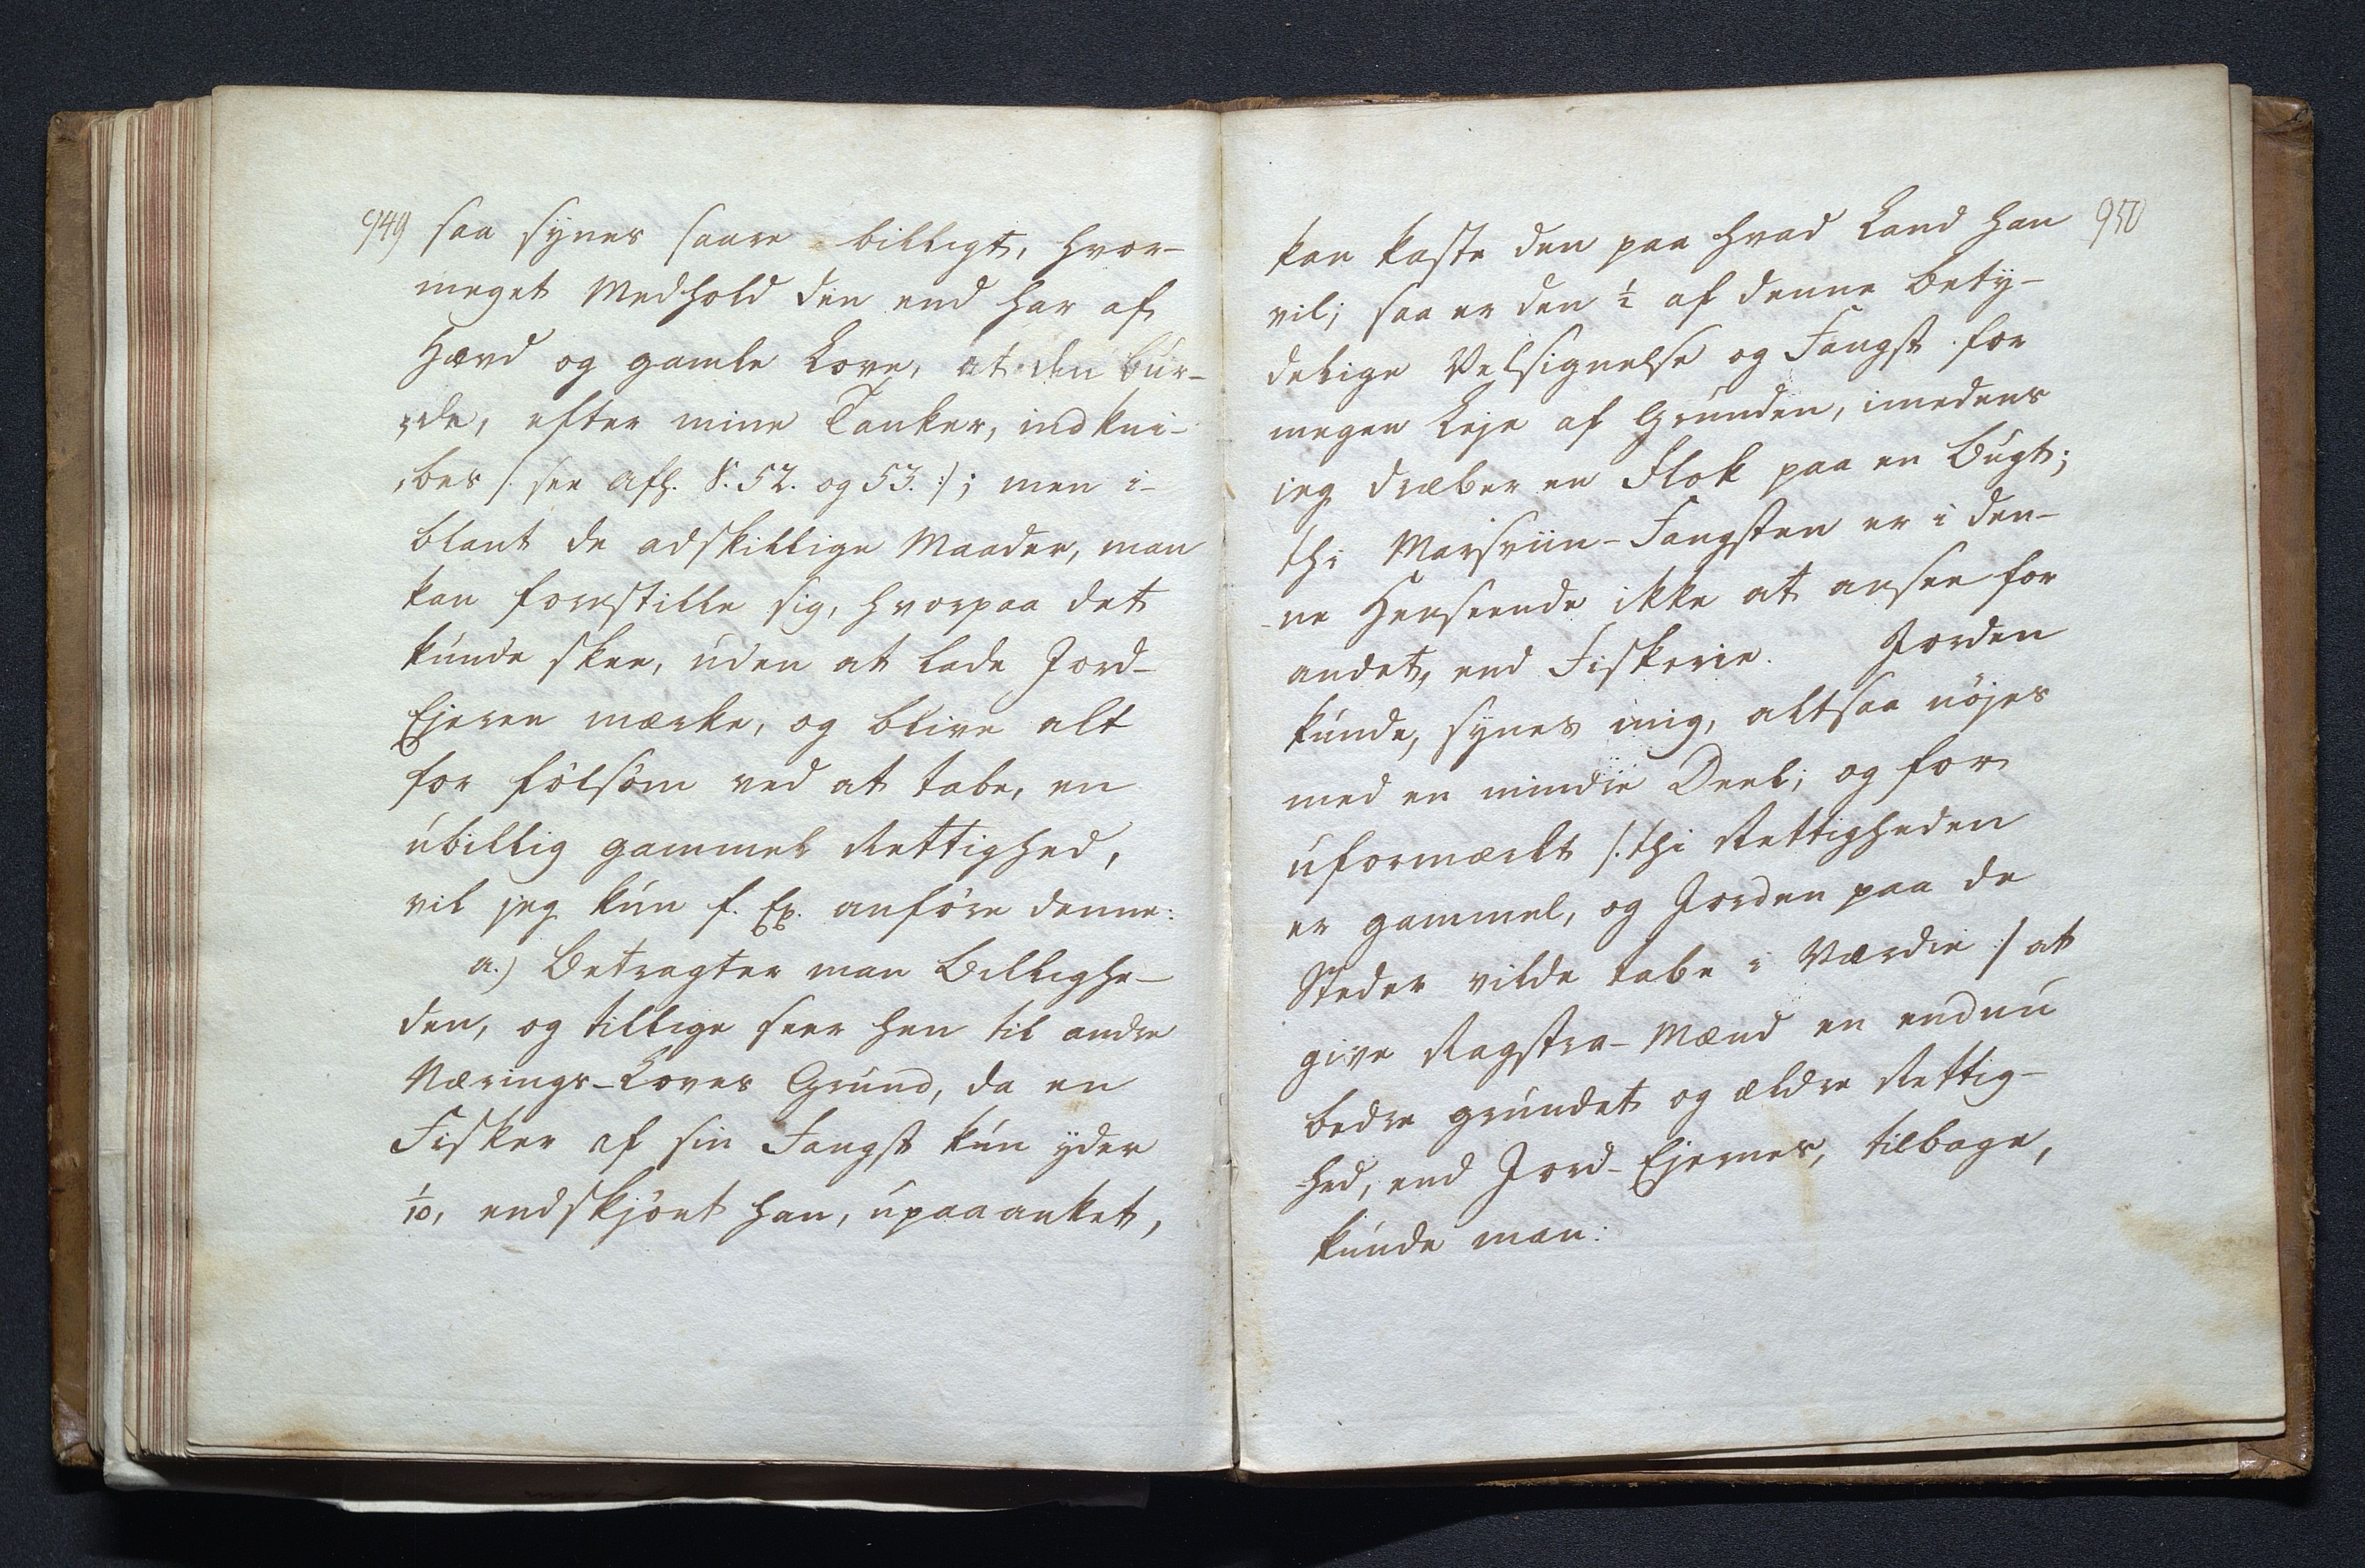 949
saa synes saare billigt, hvor-
meget Medhold den end har af
Hævd og gamle Love, at den bur-
de, efter mine Tanker, indkni-
bes /: see Afh. §. 52. og 53. :/; men i-
blant de adskillige Maader, man
kan forestille sig, hvorpaa det
kunde skee, uden at lade Jord-
Ejeren mærke, og blive alt
for følsom ved at tabe, en
ubillig gammel Rettighed,
vil jeg kun f. Ex. anføre denne:
a.) Betragter man Billighe-
den, og tillige seer hen til andre
Nærings-Loves Grund, da en
Fisker af sin Fangst kun yder
1/10, endskjønt han, upaaanket,
950
kan kaste den paa hvad Land han
vil; saa er den ½ af denne bety-
delige Velsignelse og Fangst for
megen Leje af Grunden, imedens
jeg dræber en Flok paa en Bugt;
thi Marsviin-Fangsten er i den-
ne Henseende ikke at ansee for
andet, end Fiskerie. Jorden
kunde, synes mig, altsaa nøjes
med en mindre Deel; og for
uformærkt /: thi Rettigheden
er gammel, og Jorden paa de
Steder vilde tabe i Værdie :/ at
give Ragstra-Mænd en endnu
bedre grundet og ældre Rettig-
hed, end Jord-Ejernes, tilbage,
kunde man: